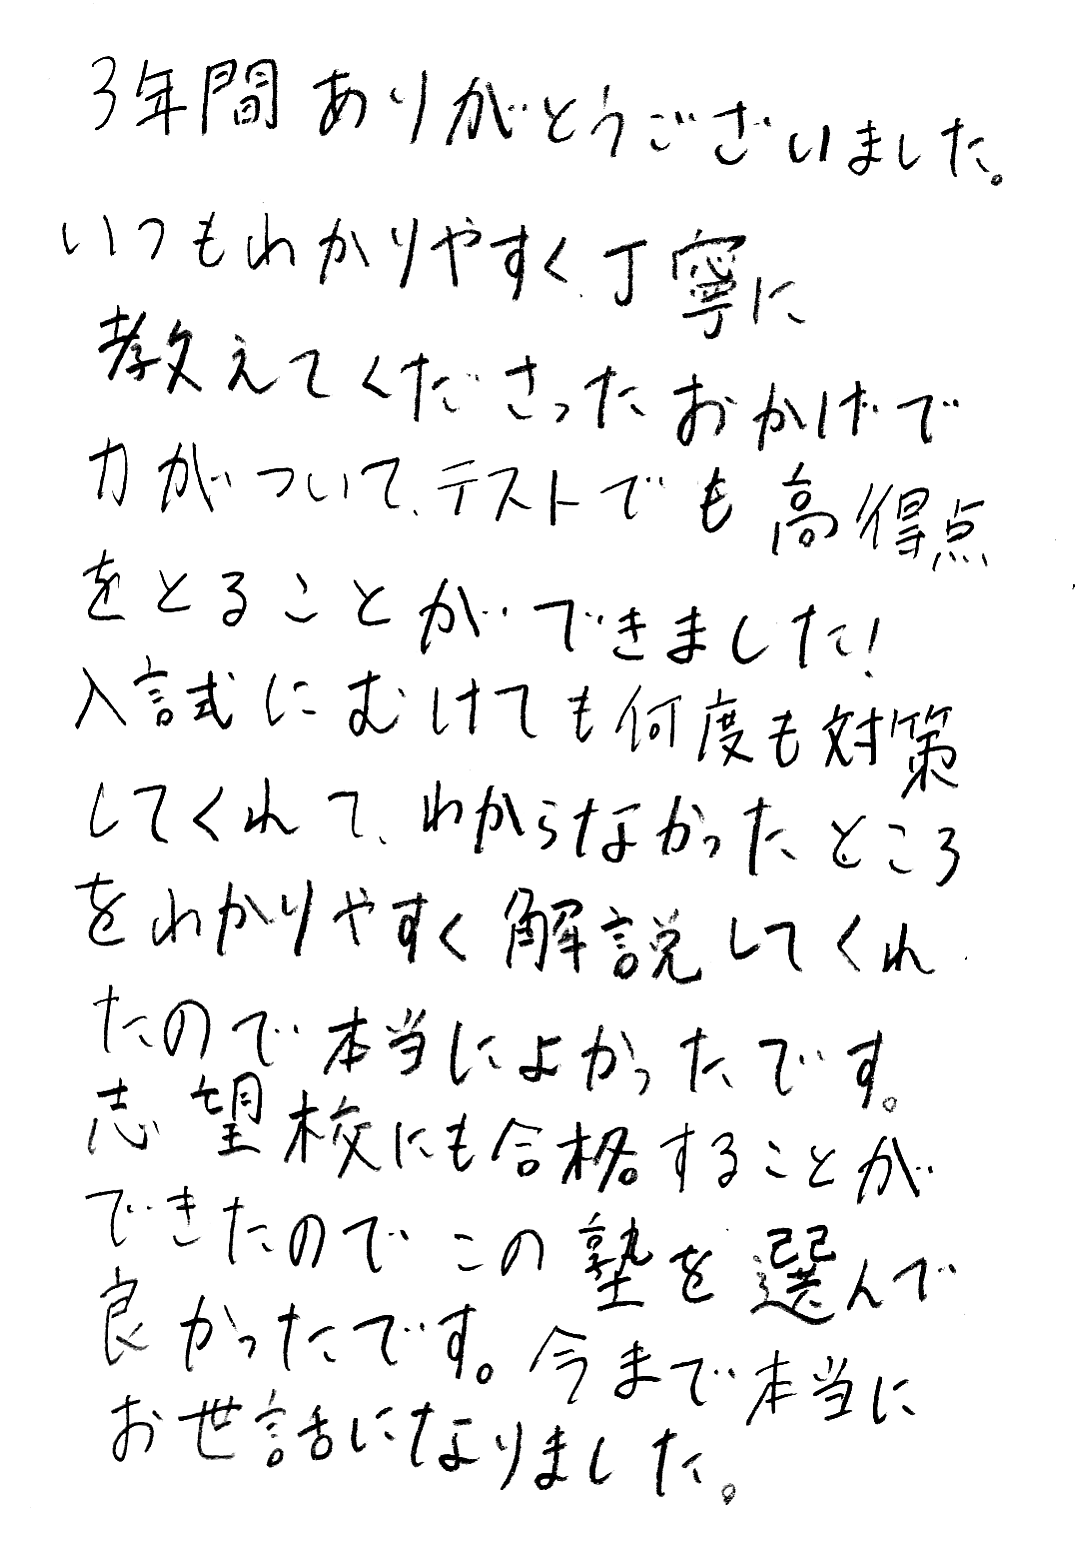 3年間ありがとうございました。
いつもわかりやすく、丁寧に
教えてくださったおかげで
力がついて、テストでも高得点
をとることができました!
入試にむけても何度も対策
してくれて、わからなかったところ
をわかりやすく解説してくれ
たので本当によかったです。
志望校にも合格することが
できたのでこの塾を選んで
良かったです。今まで本当に
お世話になりました。